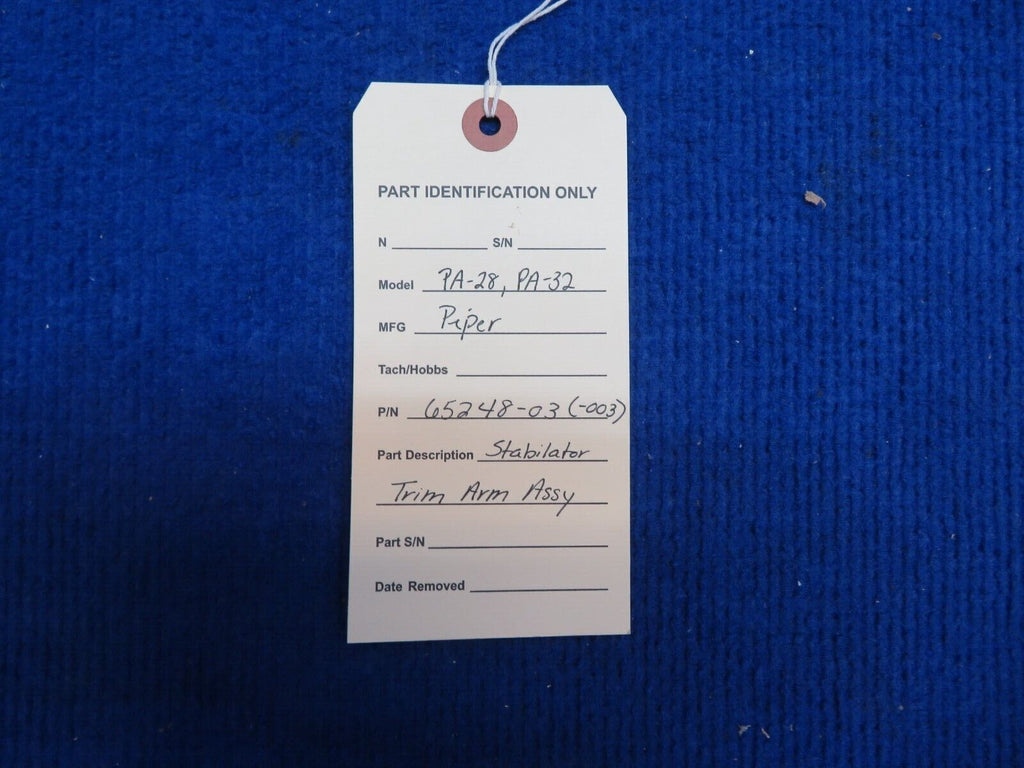 PART IDENTIFICATION ONLY
N ____________ S/N ___________
Model PA-28, PA-32
MFG Piper
Tach/Hobbs
P/N 65248-03 (-003)
Part Description Stabilator
Trim Arm Assy
Part S/N
Date Removed